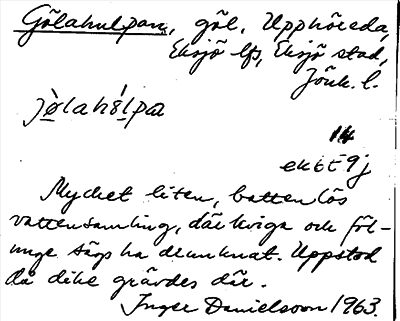 Gölahulpan, göl, Upphöreda,
Eksjö lfs, Eksjö stad,
Jönk. l.
jø̀lahɵ́lpa
14
ek 6E 9j
Mycket liten, bottenlös
vattensamling, där kviga och föl-
unge sägs ha drunknat. Uppstod
då dike grävdes där.
Inger Danielsson 1963.